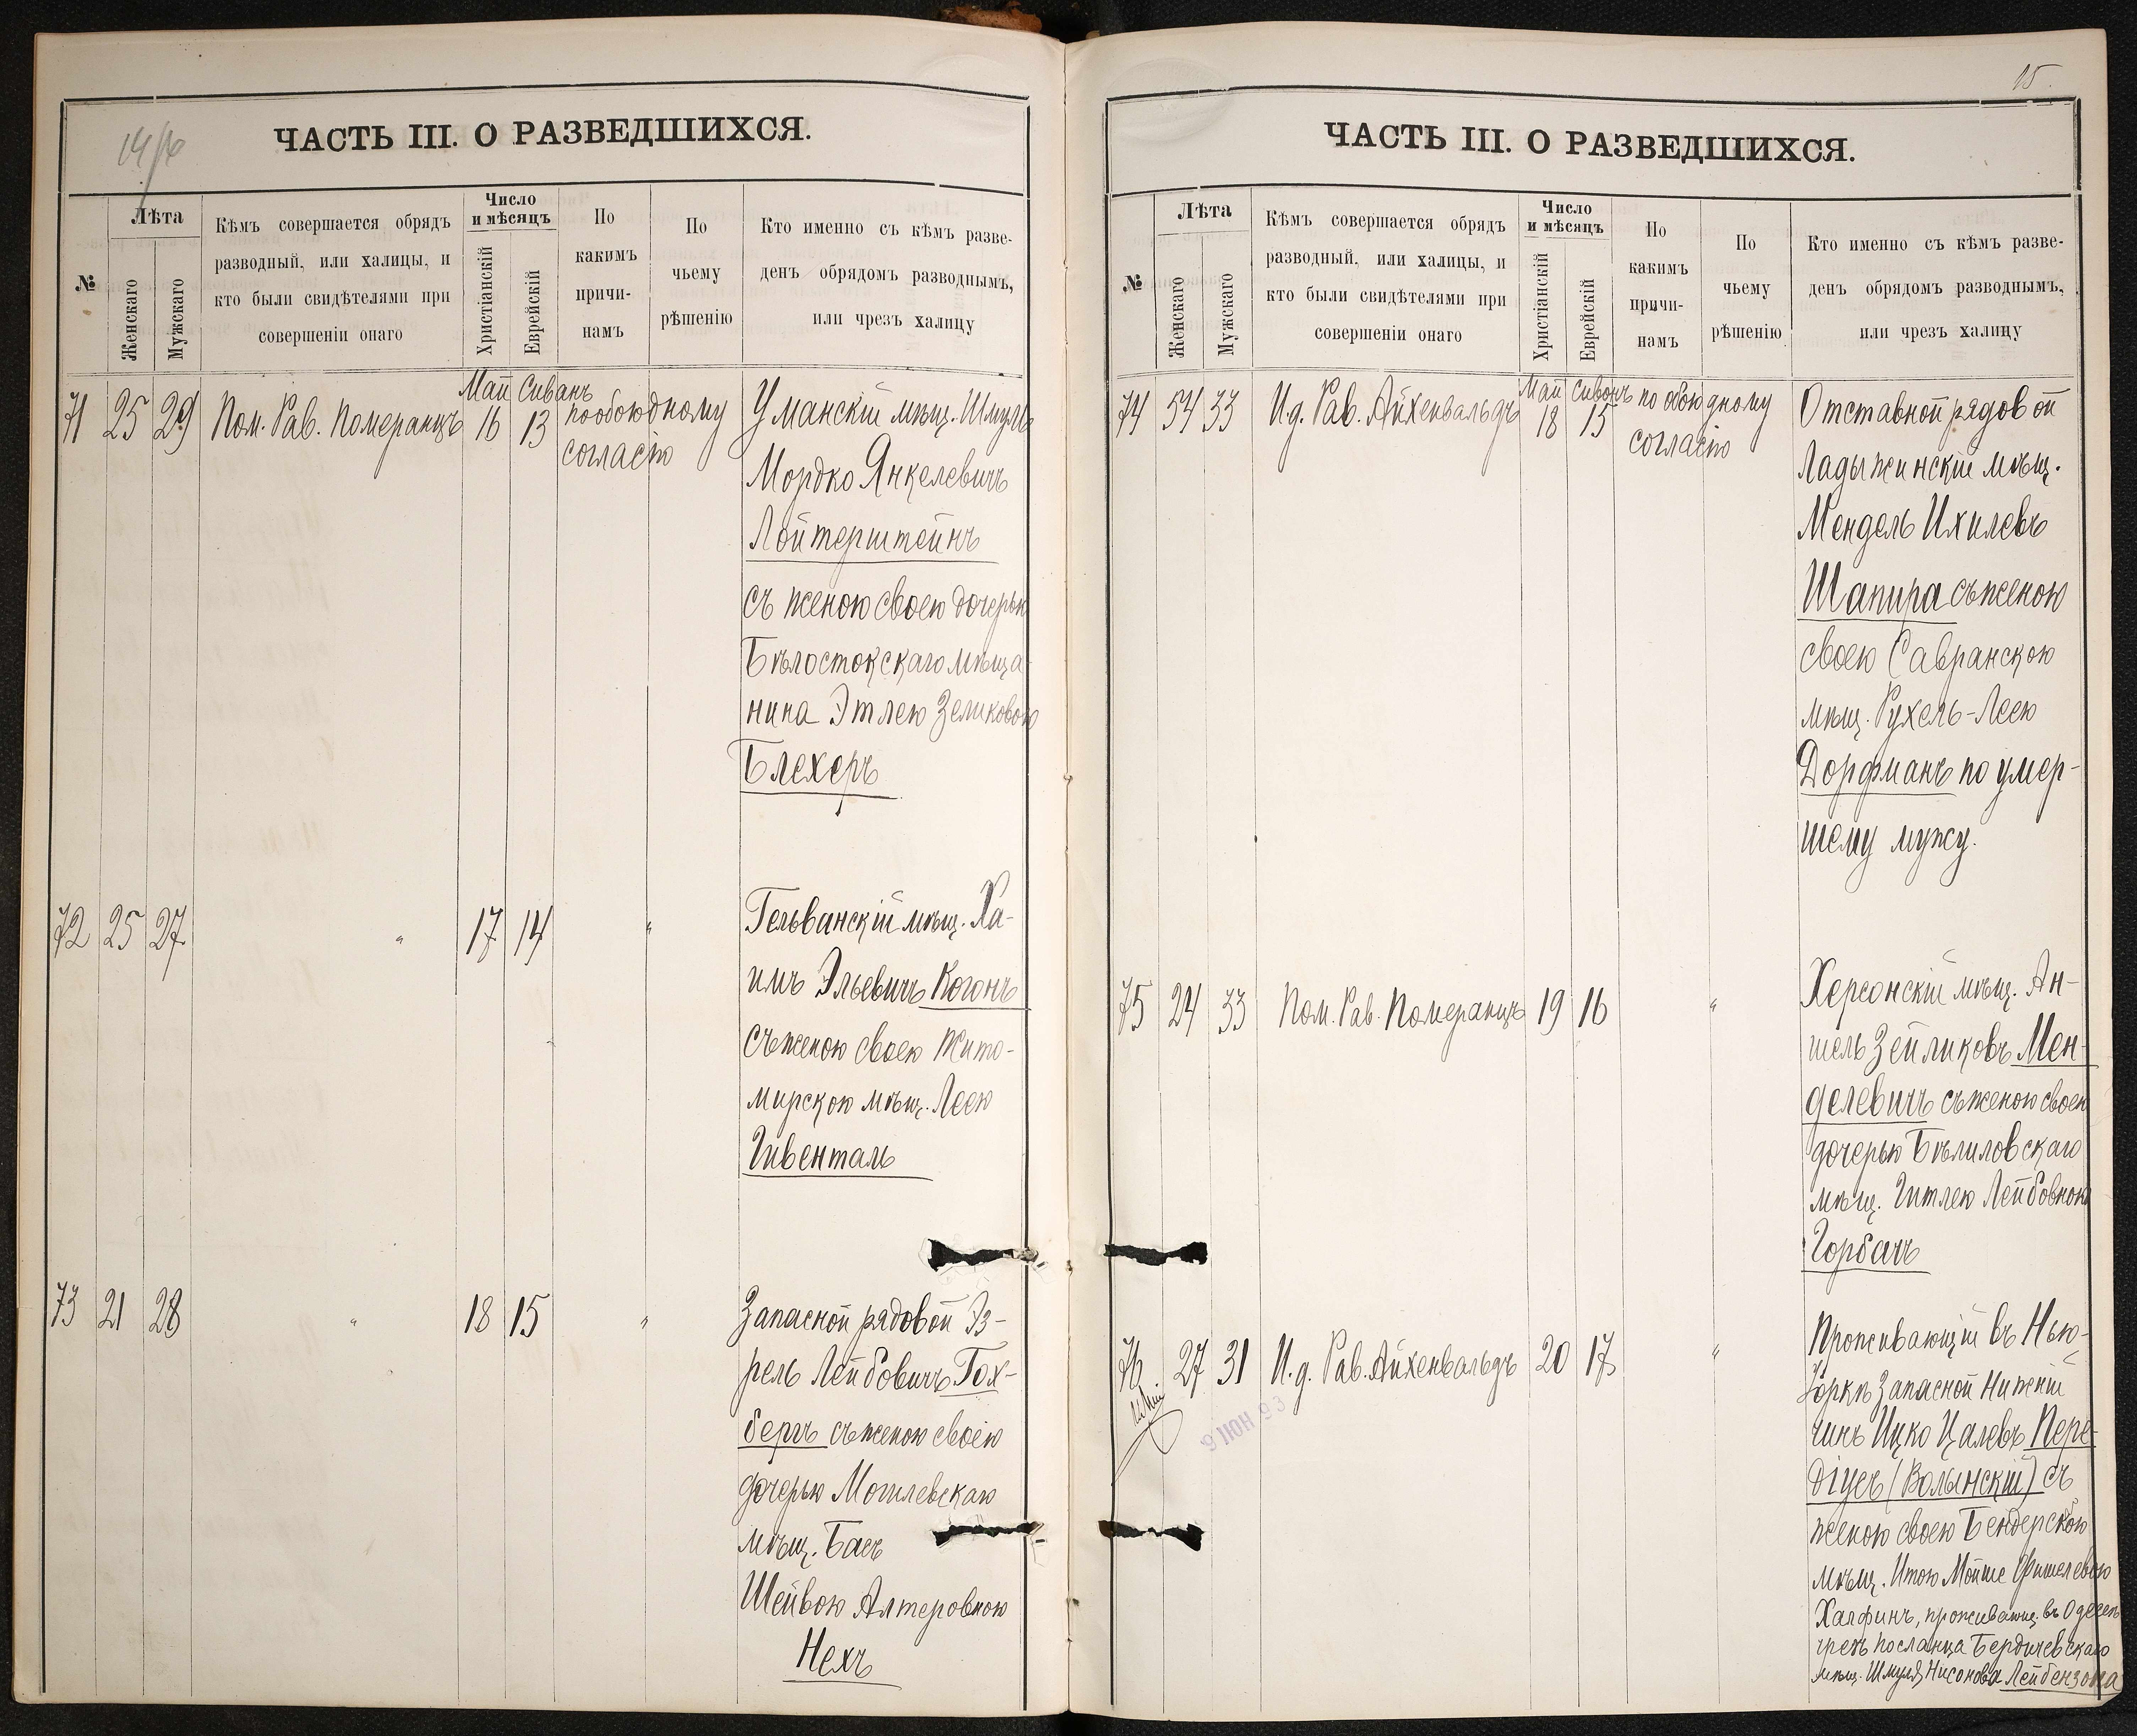 ЧАСТЬ III. О РАЗВЕДШИХСЯ.
№
Лѣта
Женскаго
Мужскаго
Кѣмъ совершается обрядъ
разводный, или халицы, и
кто были свидѣтелями при
совершеніи онаго
Число
и мѣсяцъ
Христіанскій
Еврейскій
По
какимъ
причи-
намъ
По
чьему
рѣшенію
Кто именно съ кѣмъ разве-
денъ обрядомъ разводнымъ,
или чрезъ халицу
Май Сиванъ
71 25 29 Пом. Рав. Померанцъ 16 13 по обоюдному
согласію
Уманскій мѣщ. Шмуль
Мордко Янкелевичъ
Лойтерштейнъ
съ женою своею дочерью
Бѣлостокскаго мѣща-
нина Этлею Зеликовою
Блехеръ
72 25 27 " 17 14 "
Гельванскій мѣщ. Ха-
имъ Эльевичъ Когонъ
съ женою своею Жито-
мирскою мѣщ. Леею
Гивенталь
73 21 28 " 18 15 "
Запасной рядовой Эз-
рель Лейбовичъ Гох-
бергъ съ женою своею
дочерью Могилевскаго
мѣщ. Басъ
Шейвою Алтеровною
Нехъ
15.
ЧАСТЬ III. О РАЗВЕДШИХСЯ.
№
Лѣта
Женскаго
Мужскаго
Кѣмъ совершается обрядъ
разводный, или халицы, и
кто были свидѣтелями при
совершеніи онаго
Число
и мѣсяцъ
Христіанскій
Еврейскій
По
какимъ
причи-
намъ
По
чьему
рѣшенію
Кто именно съ кѣмъ разве-
денъ обрядомъ разводнымъ,
или чрезъ халицу
Май Сивонъ
74 54 33 И.д. Рав. Айхенвальдъ 18 15 по обоюдному
согласію
Отставной рядовой
Ладыжинскій мѣщ.
Мендель Ихилевъ
Шапира съ женою
своею Савранскою
мѣщ. Рухель-Леею
Дорфманъ по умер-
шему мужу.
75 24 33 Пом. Рав. Померанцъ 19 16 "
Херсонскій мѣщ. Ан-
шель Зейликовъ Мен-
делевичъ съ женою своею
дочерью Бѣлиловскаго
мѣщ. Гитлею Лейбовною
Горбачъ
76 27 31 И.д. Рав. Айхенвальдъ 20 17 "
9 ІЮН 93
Проживающій въ Нью-
Іоркѣ Запасной Нижній
чинъ Ицко Цалевъ Пере-
діцеъ (Волынскій) съ
женою своею Бендерскою
мѣщ. Итою Мойше Фишелевою
Халфинъ, проживающ. въ Одессѣ
чрезъ посланца Бердичевскаго
мѣщ. Шмуля Нисонова Лейбензона